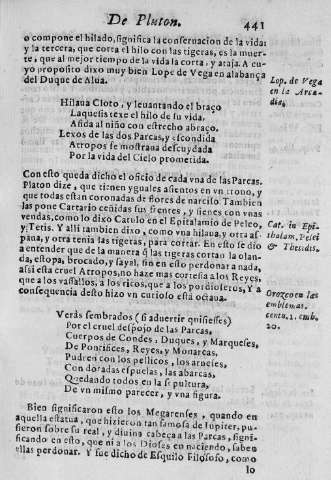 De Pluton. 441
o compone el hilado, significa la conseruacion de la vida:
y la tercera, que corta el hilo con las tigeras, es la muer-
te, que al mejor tiempo de la vida la corta, y ataja. A cu-
yo proposito dixo muy bien Lope de Vega en alabança
del Duque de Alua.
Lop. de Vega
en la Arca-
dia,
Hilaua Cloto, y leuantando el braço
Laquesis texe el hilo de su vida,
Asida al niño con estrecho abraço.
Lexos de las dos Parcas, y escondida
Atropos se mostraua descuydada
Por la vida del Cielo prometida.
Con esto queda dicho el oficio de cada vna de las Parcas.
Platon dize, que tienen yguales asientos en vn trono, y
que todas estàn coronadas de flores de narciso. Tambien
las pone Cartario ceñidas sus frentes, y sienes con vnas
vendas, como lo dixo Catulo en el Epitalamio de Peleo,
y Tetis. Y alli tambien dixo, como vna hilaua, y otra
pana, y otra tenia las tigeras, para cortar. En esto se diò
a entender que de la manera q̃ las tigeras cortan la olan-
da, estopa, brocado, y sayal, sin en esto perdonar a nada,
assi esta cruel Atropos, no haze mas cortesia a los Reyes,
que a los vassallos, a los ricos, que a los pordioseros, Y a
consequencia desto hizo vn curioso esta octaua.
Cat. in Epi-
thalam. Pelei
& Thetidis.
Orozco en las
emblemas.
centu. 2. emb.
20.
Veràs sembrados (si aduertir quisiesses)
Por el cruel despojo de las Parcas,
Cuerpos de Condes, Duques, y Marqueses,
De Pontifices, Reyes, y Monarcas.
Pudren con los pellicos, los arneses,
Con doradas espuelas, las abarcas,
Quedando todos en la sepultura,
De vn mismo parecer, y vna figura.
Bien significaron esto los Megarenses, quando en
aquella estatua, que hizieron tan famosa de Iupiter, pu-
sieron sobre su real, y diuina cabeça a las Parcas, signi-
ficando en esto, que ni a los Dioses en naciendo, saben
ellas perdonar. Y fue dicho de Esquilo Filosofo, como
lo